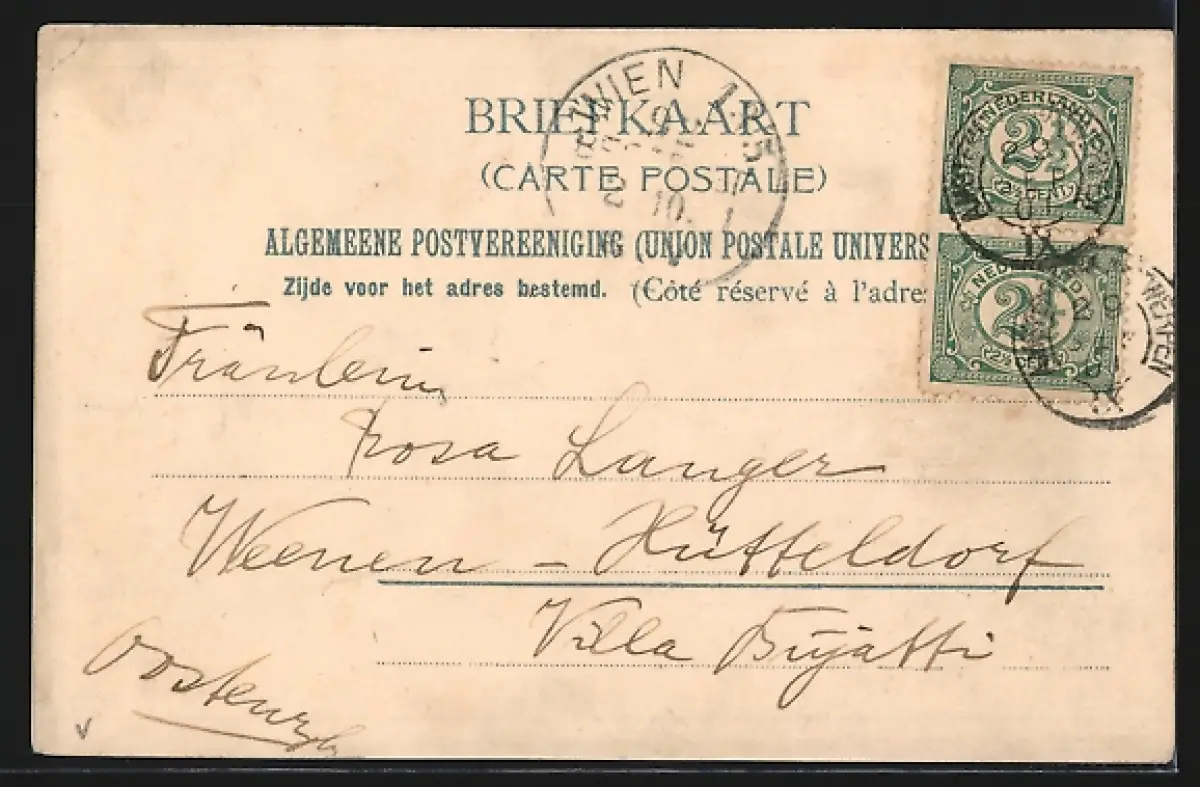 BRIEFKAART
(CARTE POSTALE)
ALGEMEENE POSTVEREENIGING (UNION POSTALE UNIVERS
Zijde voor het adres bestemd. (Côté réservé à l'adre
WIEN
NEDERLAND
2½
(2½ CENT)
NEDERLAND
2½
(2½ CENT)
Fräulein
Rosa Langer
Weenen - Hütteldorf
Villa Bujatti
Oostenrijk